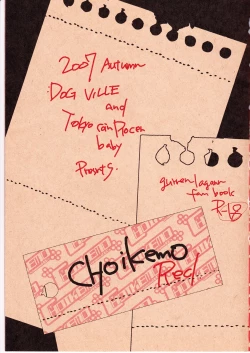 2007 Autumn
DOG VILLE
and
Tokyo can Pocen
baby
Presents.
gurren lagann
fan book
R-18
CHOIKEMO
Red